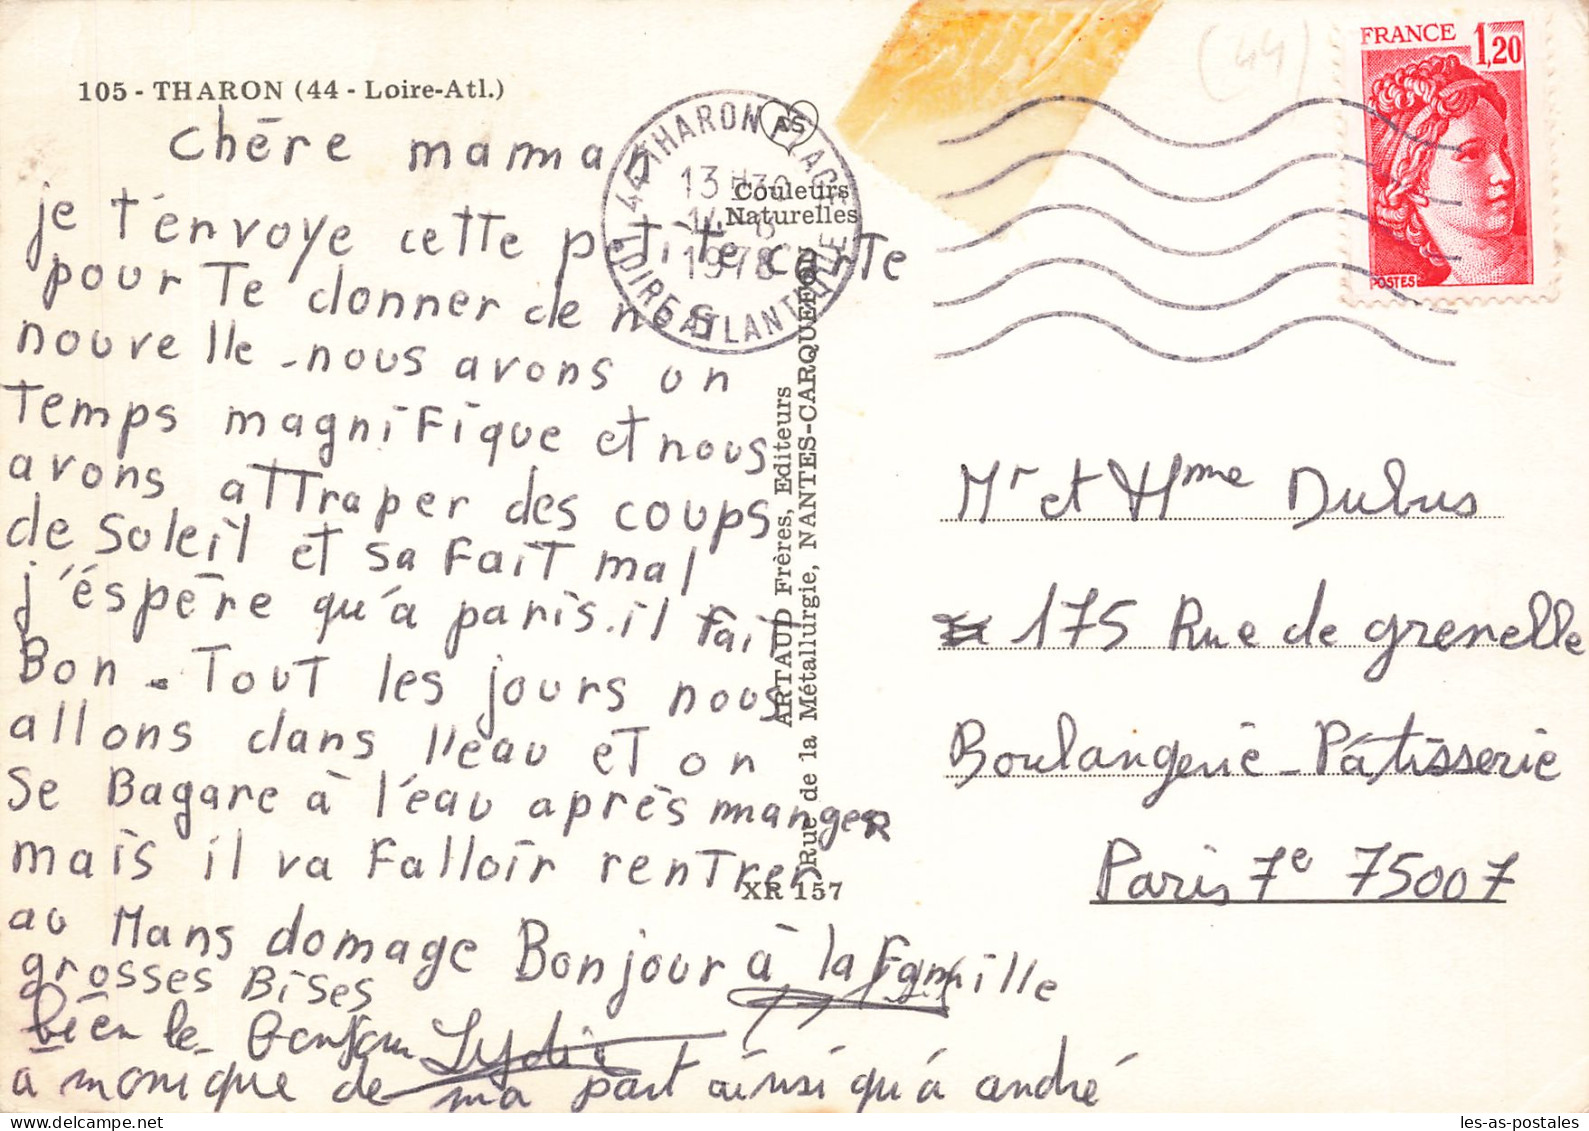 105 - THARON (44 - Loire-Atl.)
chére maman
je t'envoye cette petite carte
pour te donner de nos
nouvelle - nous avons un
temps magnifique et nous
avons attraper des coups
de soleil et sa fait mal
j'éspére qu'a paris. il fait
Bon - Tout les jours nous
allons dans l'eau et on
se Bagare à l'eau après manger
mais il va falloir rentrer
au Mans domage Bonjour à la Famille
grosses Bises
Lydie
bien le Bonjour
a monique de ma part ainsi qu'à andré
44 THARON PLAGE
13 H30
14 - 8
1978
LOIRE ATLANTIQUE
AS
Couleurs
Naturelles
ARTAUD Frères, Editeurs
Rue de la Métallurgie, NANTES-CARQUEFOU
XR 157
(44)
FRANCE 1,20
POSTES
Mr et Mme Dubus
175 Rue de grenelle
Boulangerie - Pâtisserie
Paris 7e 75007
les-as-postales